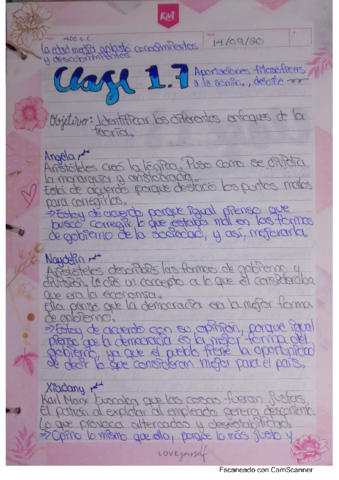 KM
14/09/20
La edad media aplastó conocimientos
y descubrimientos.
Clase 1.7
Aportaciones filosóficas
a la
Objetivo: Identificar los diferentes enfoques de la
teoría.
Angela
Aristóteles creó la lógica. Puso como se dividía
la monarquía y aristocracia.
Está de acuerdo porque destacó los puntos malos
para corregirlos.
→ Estoy de acuerdo porque igual pienso que
buscó corregir lo que estaba mal en las formas
de gobierno de la sociedad, y así, mejorarla.
Naydelin
Aristóteles describió las formas de gobierno y
división. Le dió un concepto a lo que él consideraba
que era la economía.
Ella piensa que la democracia era la mejor forma
de gobierno.
→ Estoy de acuerdo con su opinión, porque igual
pienso que la democracia es la mejor forma del
gobierno, ya que el pueblo tiene la oportunidad
de decir lo que consideran mejor para el país.
Xiadany
Karl Marx buscaba que las cosas fueran justas.
El patrón al explotar al empleado genera descontento
lo que provoca altercados y desestabilidad
→ Opino lo mismo que ella, porque lo más justo y
LOVE yourself
Escaneado con CamScanner